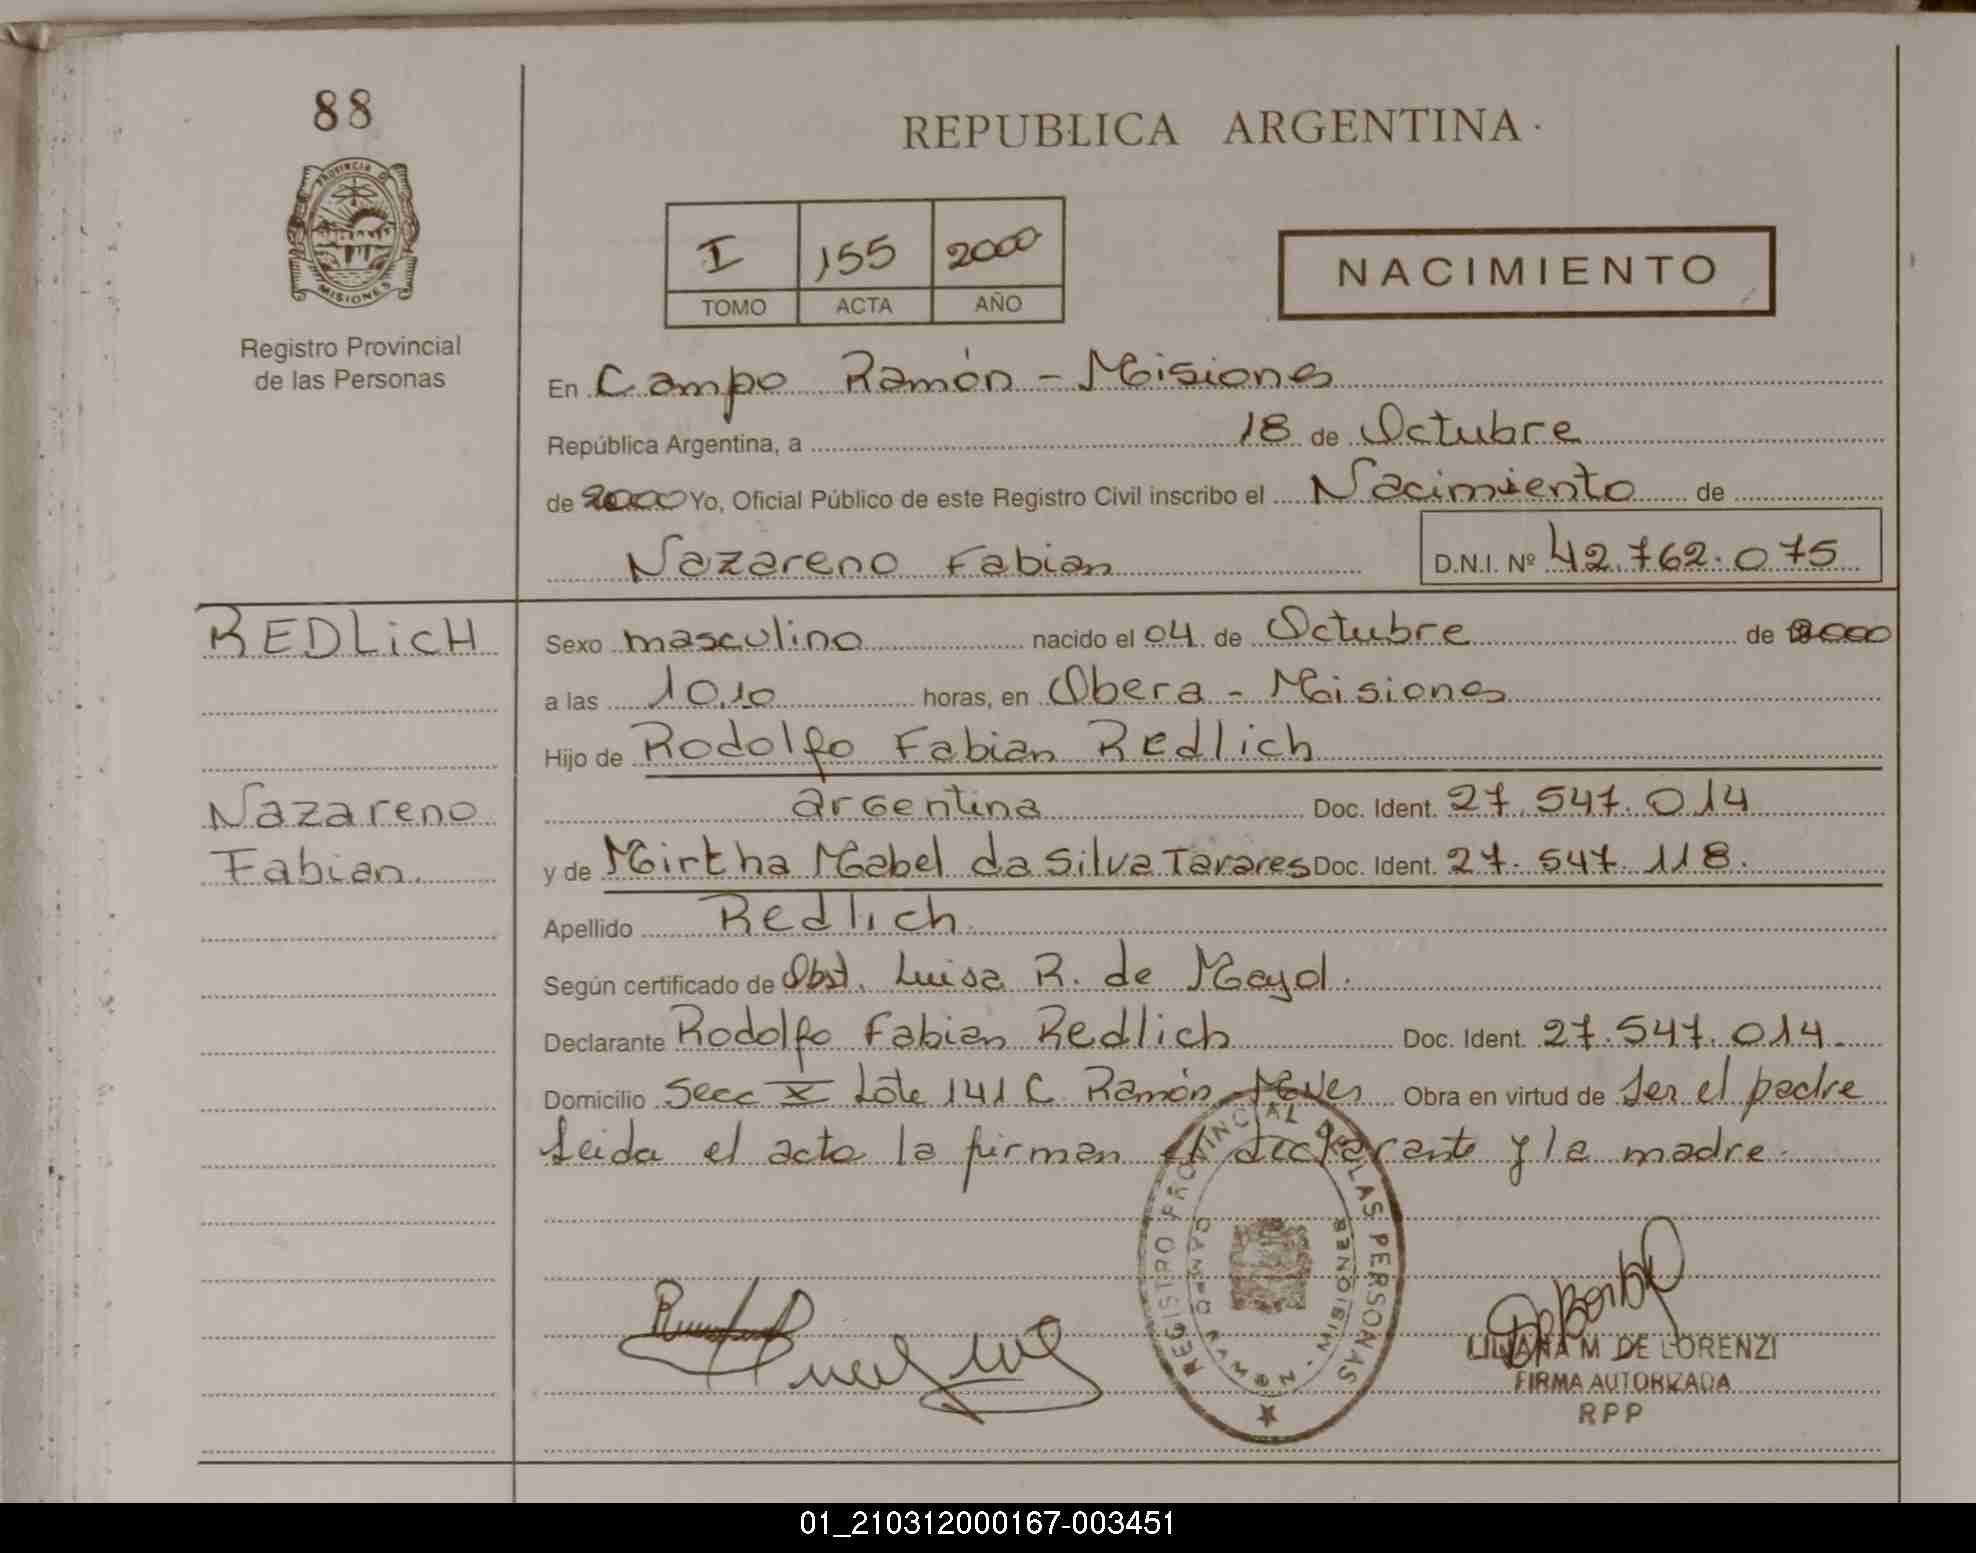 88
PROVINCIA D
MISIONES
Registro Provincial
de las Personas
REPUBLICA ARGENTINA
I 155 2000
TOMO ACTA AÑO
NACIMIENTO
En Campo Ramón - Misiones
República Argentina, a 18 de Octubre
de 2000 Yo, Oficial Público de este Registro Civil inscribo el Nacimiento de
Nazareno Fabian D.N.I. Nº 42.762.075
REDLicH
Nazareno
Fabian
Sexo masculino nacido el 04 de Octubre de 2000
a las 10,10 horas, en Obera - Misiones
Hijo de Rodolfo Fabian Redlich
argentina Doc. Ident. 27.547.014
y de Mirtha Mabel da Silva Tavares Doc. Ident. 27.547.118.
Apellido Redlich
Según certificado de Obst. Luisa R. de Mayol.
Declarante Rodolfo Fabian Redlich Doc. Ident. 27.547.014.
Domicilio Secc X Lote 141 C. Ramón Mnes Obra en virtud de Ser el padre
Leida el acta la firman el declarante y la madre.
REGISTRO PROVINCIAL DE LAS PERSONAS
CAMPO RAMON - MISIONES
LILIANA M DE LORENZI
FIRMA AUTORIZADA
RPP
01_210312000167-003451